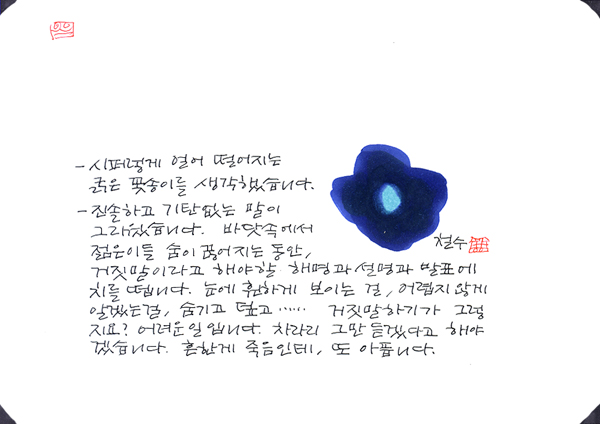 - 시퍼렇게 얼어 떨어지는
굵은 꽃송이를 생각했습니다.
- 진솔하고 기탄없는 말이
그리웠습니다. 바닷속에서
젊은이들 숨이 끊어지는 동안,
거짓말이라고 해야할 해명과 설명과 발표에
치를 떱니다. 눈에 훤하게 보이는 걸, 어렵지 않게
알겠는걸, 숨기고 덮고…… 거짓말하기가 그렇
지요? 어려운 일입니다. 차라리 그만 듣겠다고 해야
겠습니다. 흔한게 죽음인데, 또 아픕니다.
철수